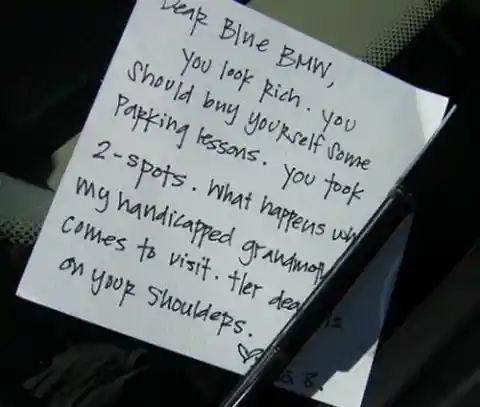 Dear Blue BMW,
You look Rich. You
should buy yourself some
Parking lessons. You took
2-spots. What happens
my handicapped
comes to visit. Her
on your shoulders.
8.